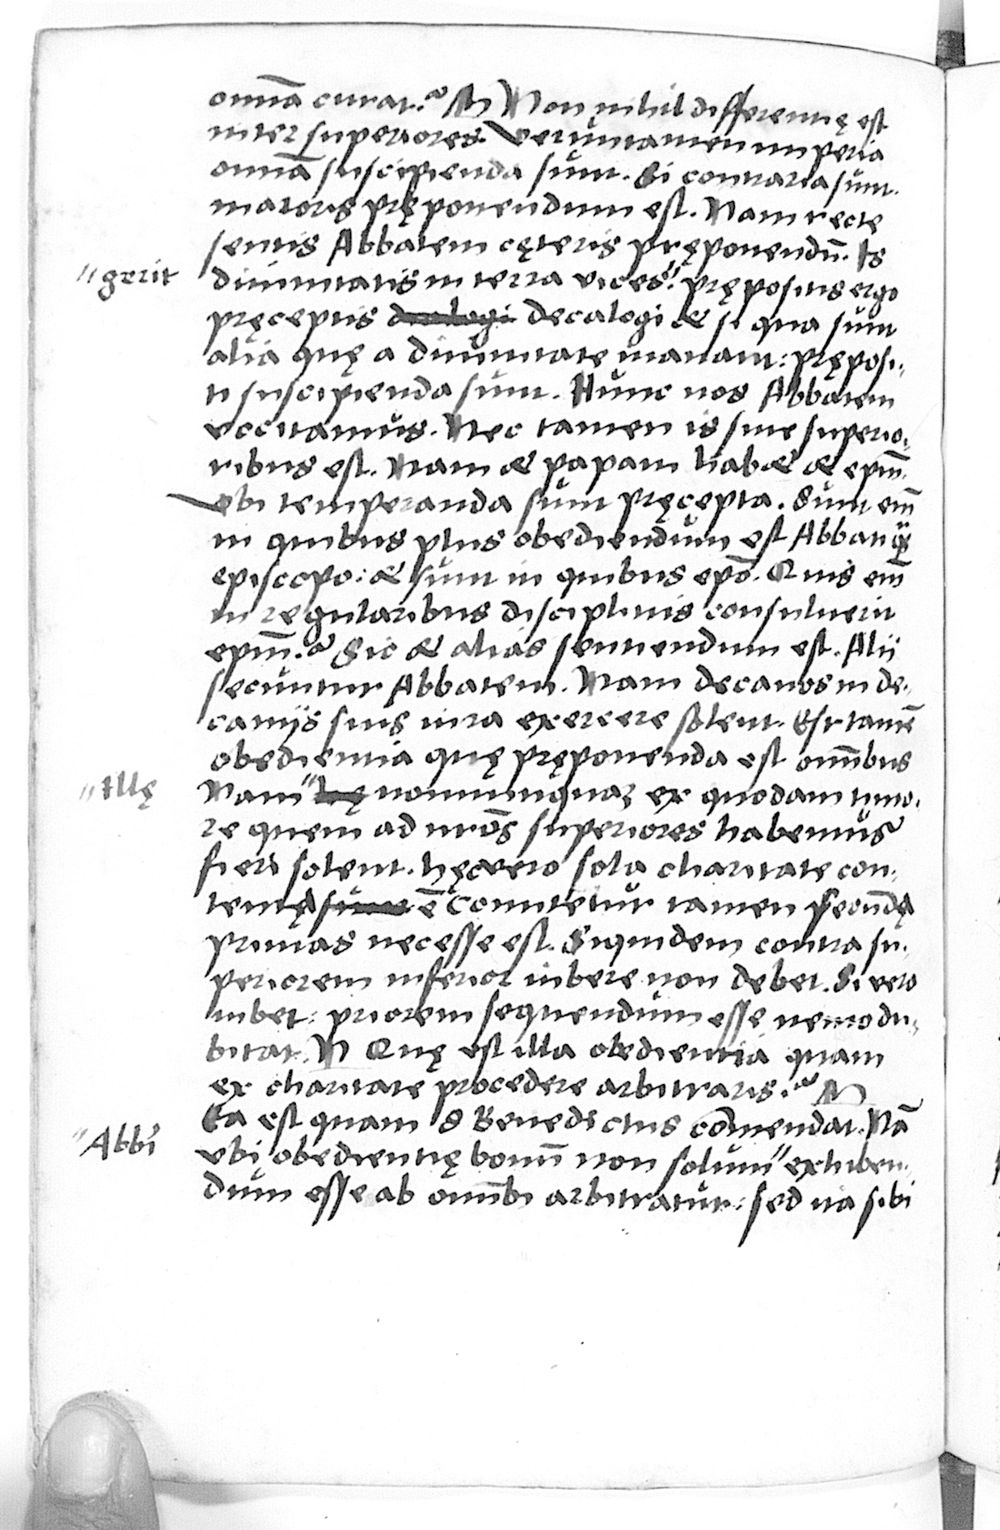 omniā curat.? M Non nihil differentię est
inter superiores. Veruntamen imperia
omniā suscipienda sunt. Si contraria sunt.
maioris pręponendum est. Nam recte
sentis Abbatem cęteris pręponendū. Is
"gerit
diuinitatis in terra vices." Prępositis ergo
pręceptis dialogi decalogi & si qua sunt
alia quę a diuinitate manant: pręposi-
ti suscipienda sunt. Hunc nos Abbatem
vocitamus. Nec tamen is sine superio-
ribus est. Nam & papam habet & epm̄.
Vbi temperanda sunt pręcepta. Sunt em̄
in quibus plus obediendum est Abbati q̄
episcopo: & sunt in quibus epō. Quis em̄
in regularibus disciplinis consuluerit
epm̄.? Sic & alias sentiendum est. Alij
secuntur Abbatem. Nam decanos in de-
canijs suis iura exercere solent. Est tamē
obedientia quę pręponenda est omībus
"Illę
Nam" hę nonnunquaȝ ex quodam timo-
re quem ad nrōs superiores habemus
fieri solent. hęc vero sola charitate con-
tenta sunt ē Comitetur tamen secundā
primas necesse est. Siquidem contra su-
periorem inferior iubere non debet. Si vero
iubet: priorem sequendum esse nemo du-
bitat. N Quę est illa obedientia quam
ex charitate procedere arbitraris.? M
Ea est quam S Benedictus cōmendat. Nā
"Abbi
vbi obedientię bonū non solum" exhiben-
dum esse ab omībus arbitratur: sed ita sibi